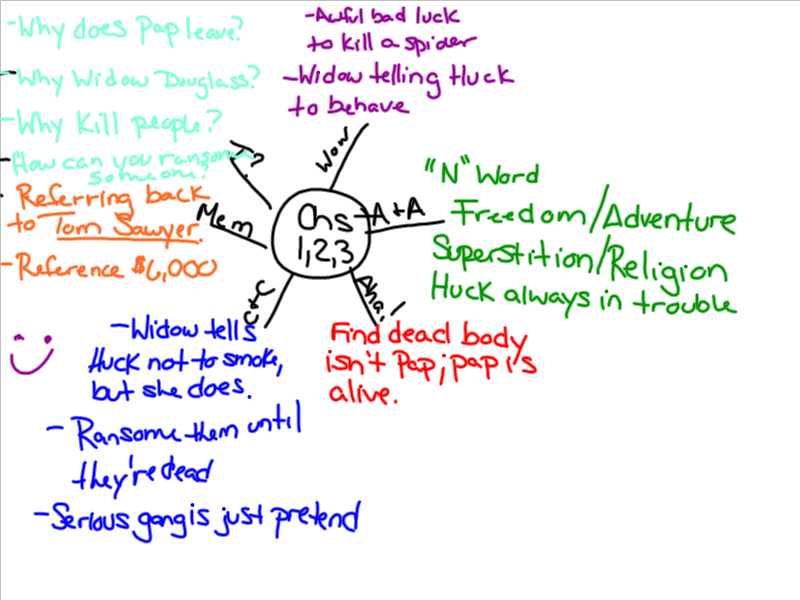 -Why does Pap leave?
-Why Widow Douglass?
-Why Kill people?
-How can you ransome
someone?
-Awful bad luck
to kill a spider
-Widow telling Huck
to behave
Wow
?
"N" Word
Freedom/Adventure
Superstition/Religion
Huck always in trouble
A+A
Chs
1,2,3
Mem
- Referring back
to Tom Sawyer.
-Reference $6,000
C+C
Aha!
-Widow tells
Huck not to smoke,
but she does.
- Ransome them until
they're dead
-Serious gang is just pretend
Find dead body
isn't Pap; pap is
alive.